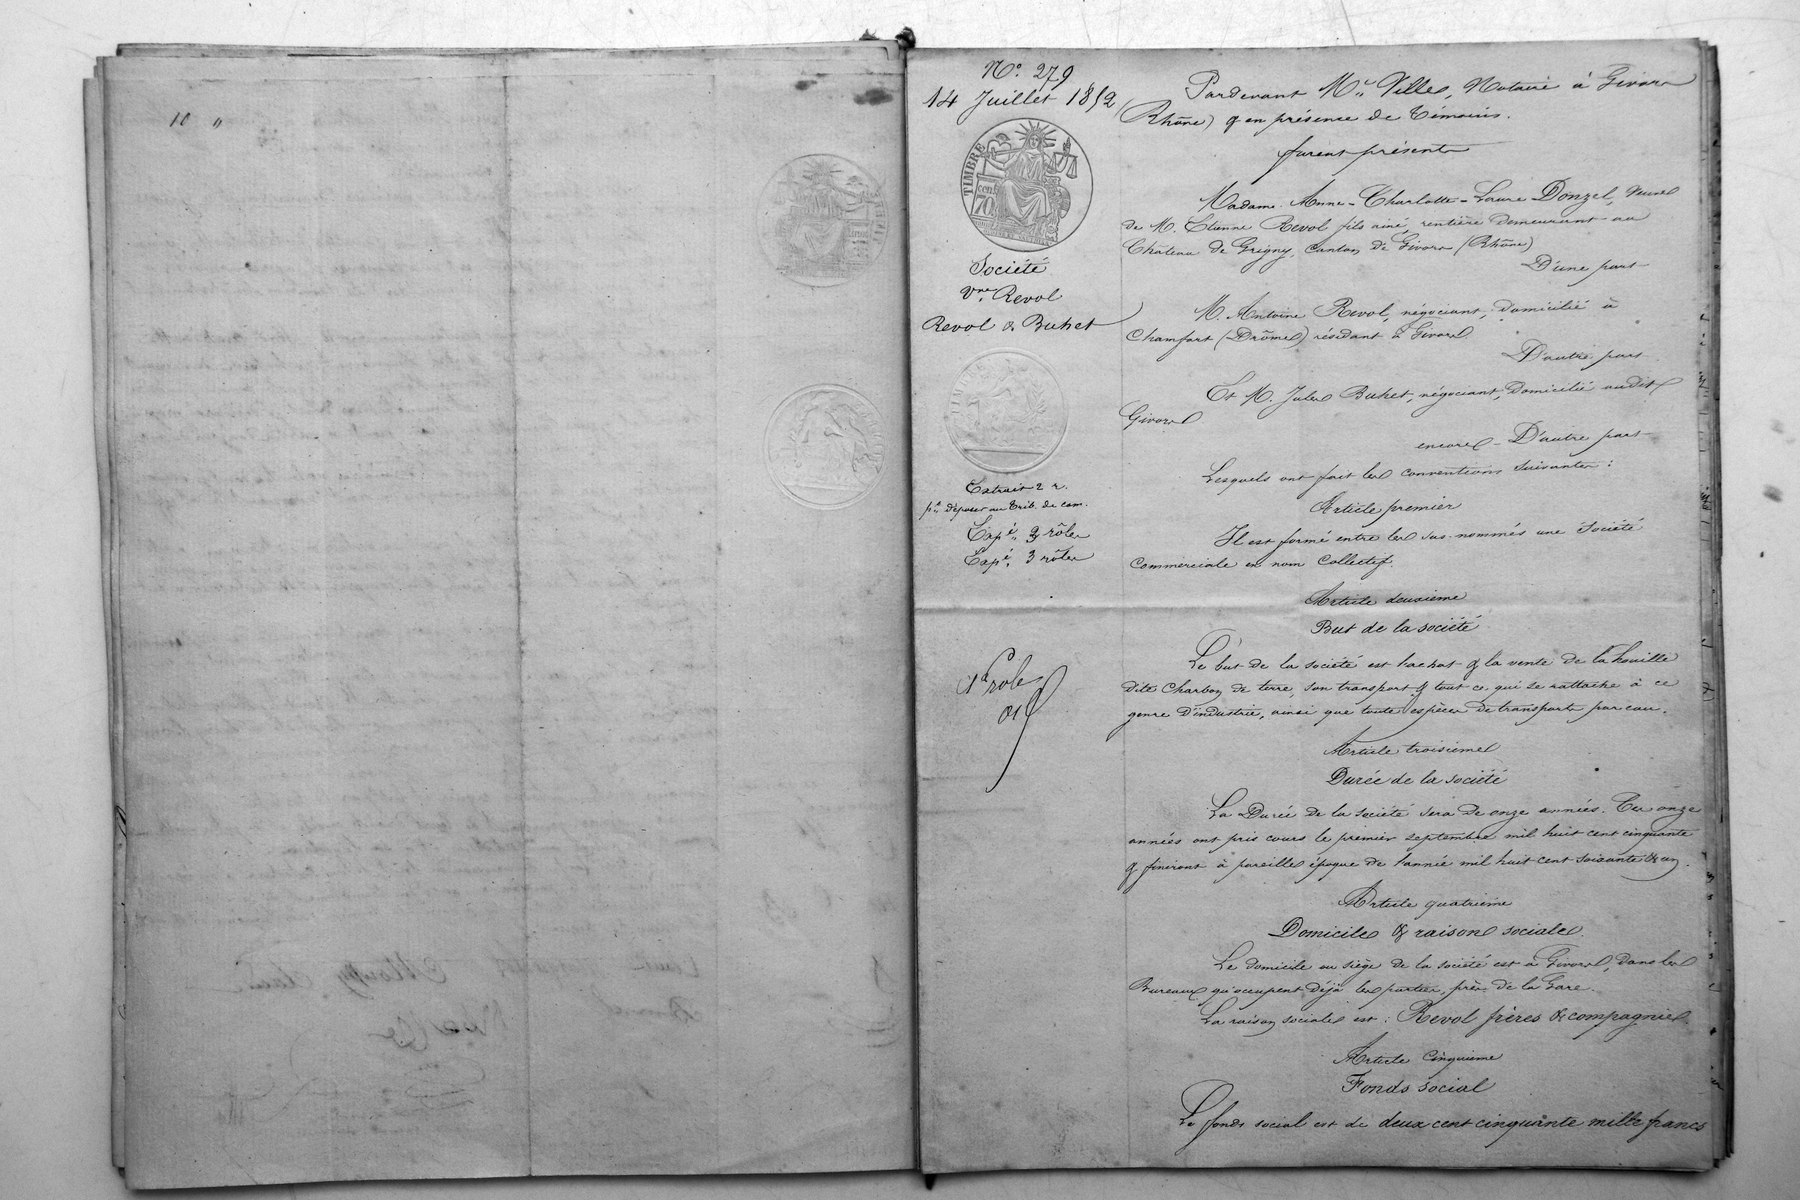 10 "
N.° 279
14 Juillet 1852
TIMBRE
cent.
70
Société
Vve Revol
Revol & Buhet
Extrait 2 r.
pr déposer au Trib. de com.
Expé. 3 rôles
Expé. 3 rôles
1er role
Pardevant Me Villes, Notaire à Givors
(Rhône) & en présence de témoins.
furent présents
Madame Anne-Charlotte-Laure Donzel, veuve
de M. Etienne Revol fils ainé, rentière demeurant au
Château de Grigny, canton de Givors (Rhône)
D'une part
M. Antoine Revol, négociant, domicilié à
Chamfort (Drôme) résidant à Givors
D'autre part
Et M. Jules Buhet, négociant, domicilié audit
Givors
encore D'autre part
Lesquels ont fait les conventions suivantes :
Article premier
Il est formé entre les sus-nommés une Société
commerciale en nom collectif.
Article deuxieme
But de la société
Le but de la société est l'achat & la vente de la houille
dite charbon de terre, son transport & tout ce qui se rattache à ce
genre d'industrie, ainsi que toute espèces de transports par eau.
Article troisieme
Durée de la société
La Durée de la société sera de onze années. Ces onze
années ont pris cours le premier septembre mil huit cent cinquante
& finiront à pareille époque de l'année mil huit cent soixante & un.
Article quatrieme
Domicile & raison sociale.
Le domicile ou siège de la société est à Givors, dans les
Bureaux qu'occupent déjà les parties, près de la Gare.
La raison sociale est : Revol frères & compagnie.
Article cinquieme
Fonds social
Le fonds social est de deux cent cinquante mille francs